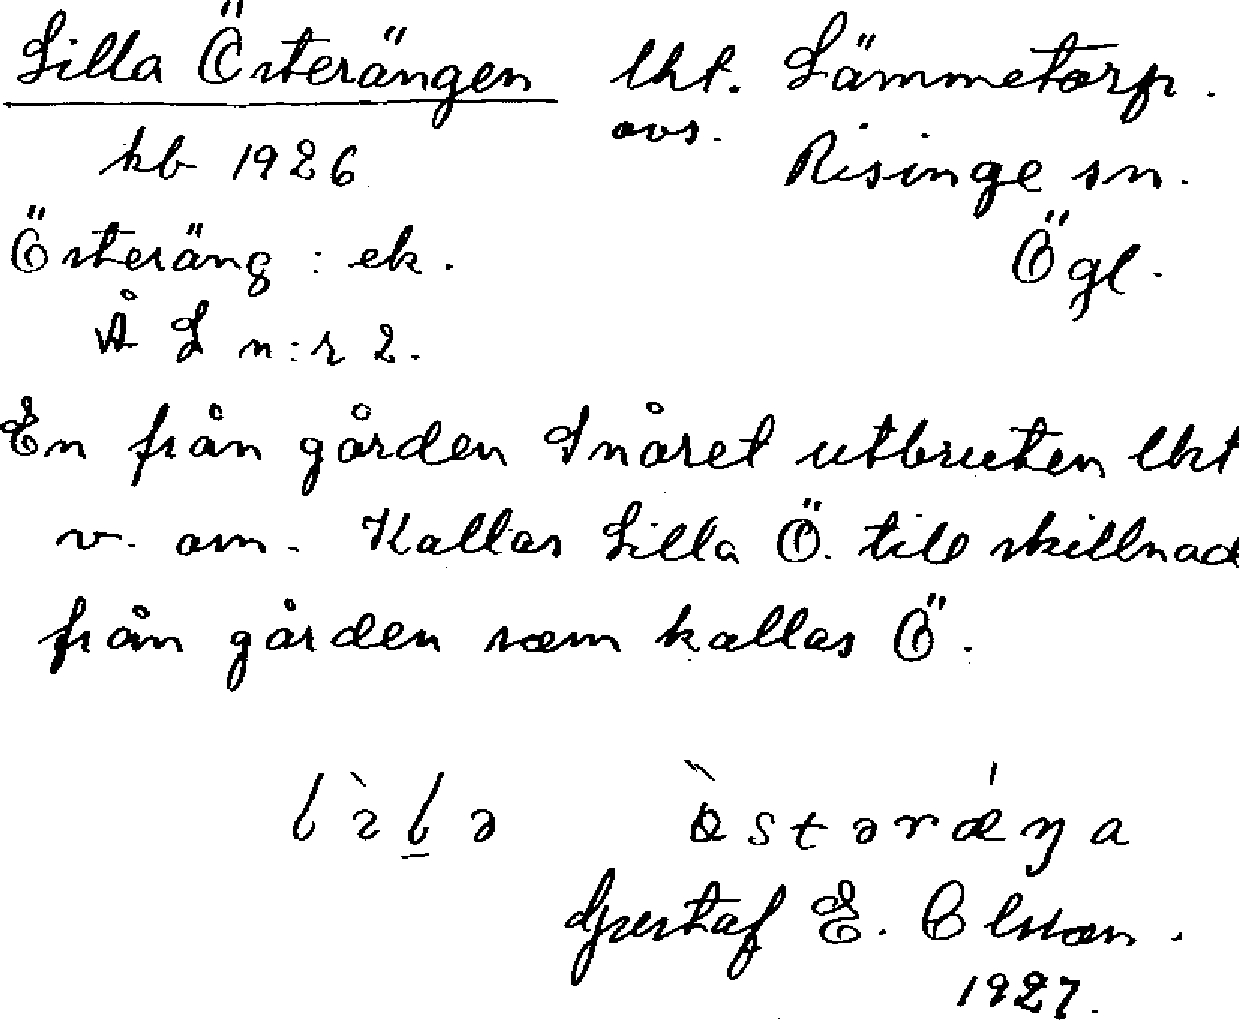 Lilla Österängen lht. Lämmetorp.
avs.
kb 1926 Risinge sn.
Österäng : ek. Ögl.
ÅL n:r 2.
En från gården Snåret utbruten lht
v. om. Kallas Lilla Ö. till skillnad
från gården som kallas Ö.
östəræŋa
Gustaf E. Olsson.
1927.